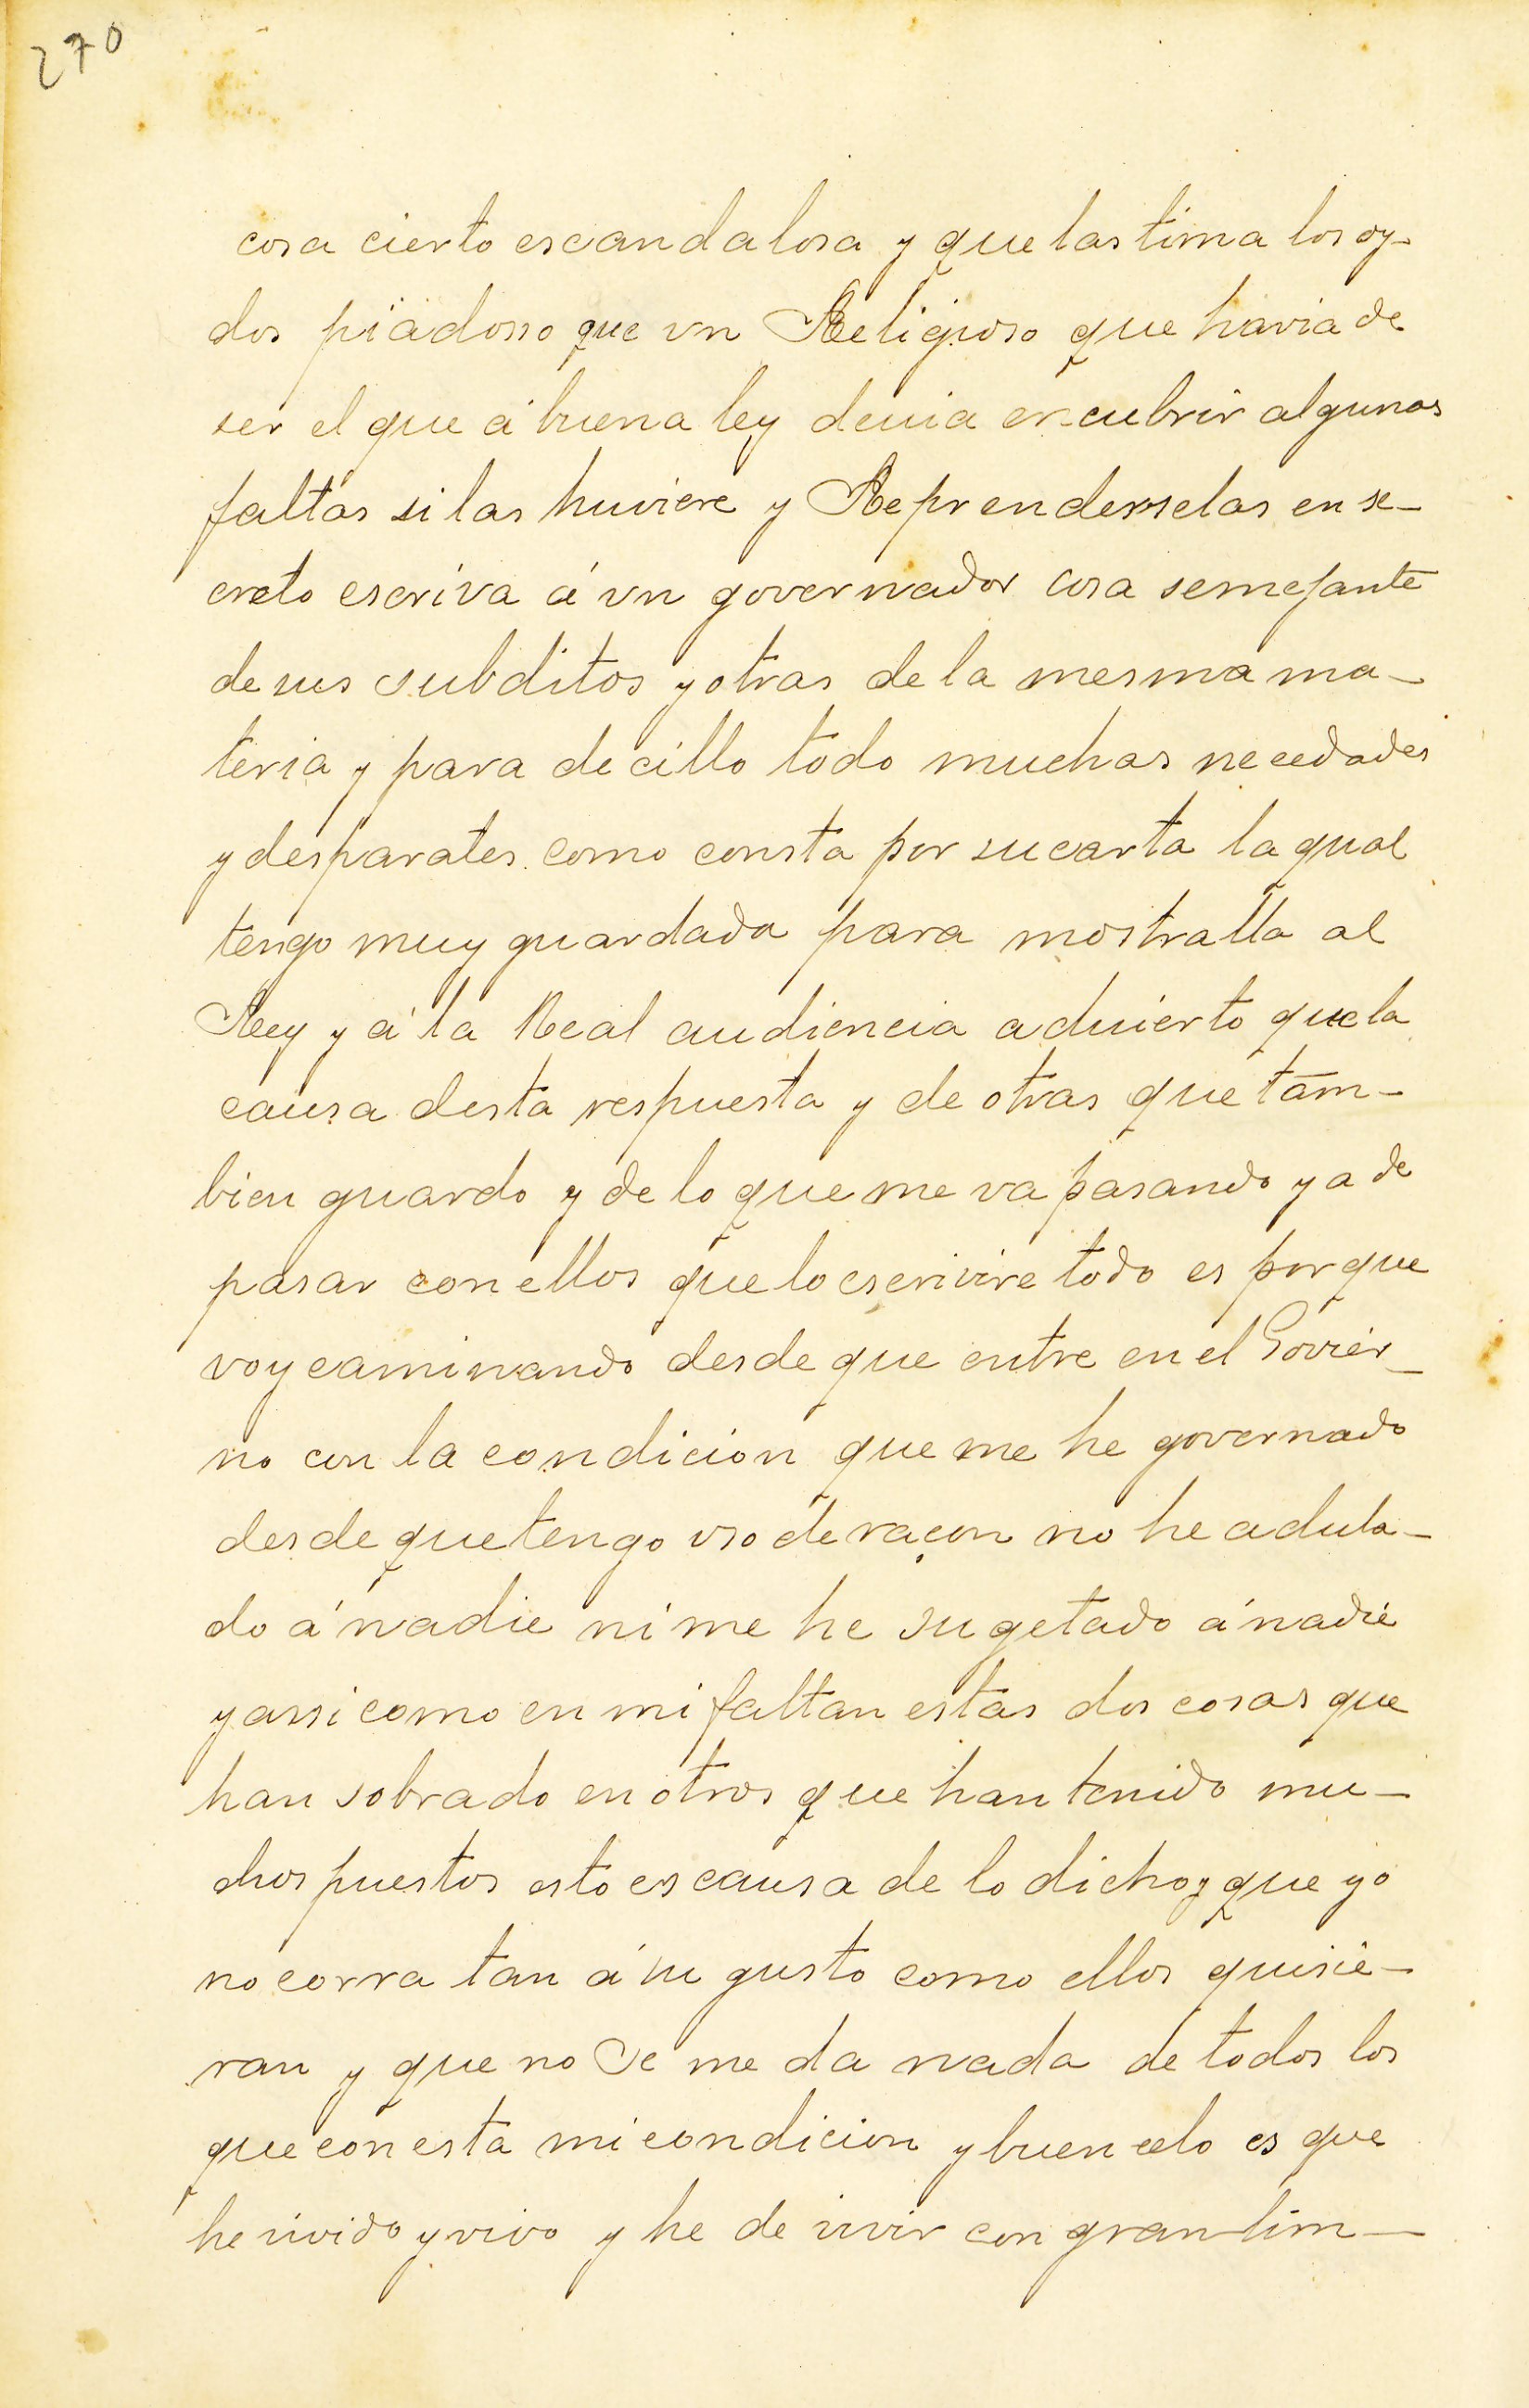 270
cosa cierto escandalosa y que lastima los oy-
dos piadosso que vn Religioso que havia de
ser el que á buena ley deuia encubrir algunas
faltas si las huviere y Reprenderselas en se-
creto escriva á vn governador cosa semejante
de sus subditos y otras de la mesma ma-
teria y para decillo todo muchas necedades
y desparates como consta por su carta la qual
tengo muy guardada para mostralla al
Rey y á la Real audiencia aduierto que la
causa desta respuesta y de otras que tam-
bien guardo y de lo que me va pasando y a de
pasar con ellos que lo escrivire todo es porque
voy caminando desde que entre en el Govier-
no con la condicion que me he governado
desde que tengo vso de raçon no he adula-
do á nadie ni me he sugetado á nadie
y assi como en mi faltan estas dos cosas que
han sobrado en otros que han tenido mu-
chos puestos esto es causa de lo dicho y que yo
no corra tan á su gusto como ellos quisie-
ran y que no Se me da nada de todos los
que con esta mi condicion y buen celo es que
he vivido y vivo y he de vivir con gran lim-